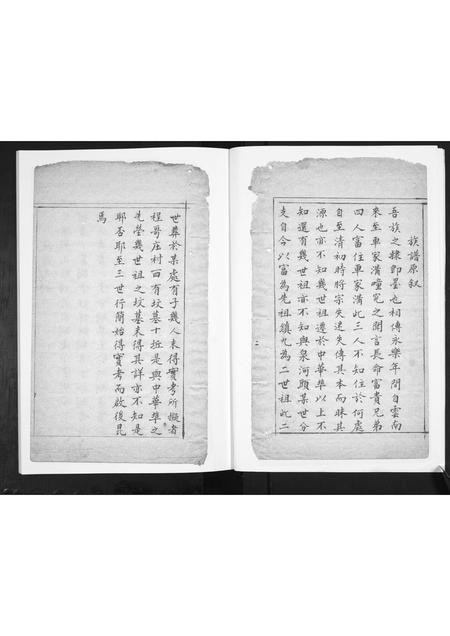 族譜原叙
吾族之隸即墨也相傳永樂年間自雲南
來至車家溝疃冕之聞言長命富貴兄弟
四人富住車家溝此三人不知住於何處
自至清初時將宗失迷失傳其本而昧其
源也亦不知幾世祖遷於中華埠以上不
知還有幾世祖亦不知與泉河頭某世分
支自今以富為先祖鎮九為二世祖此二
世葬於某處有子幾人未得實考所擬者
程哥庄村西有坟墓十坵是與中華埠之
先塋幾世祖之坟墓未得其詳亦不知是
耶否耶至三世行簡始得實考而啟後昆
焉